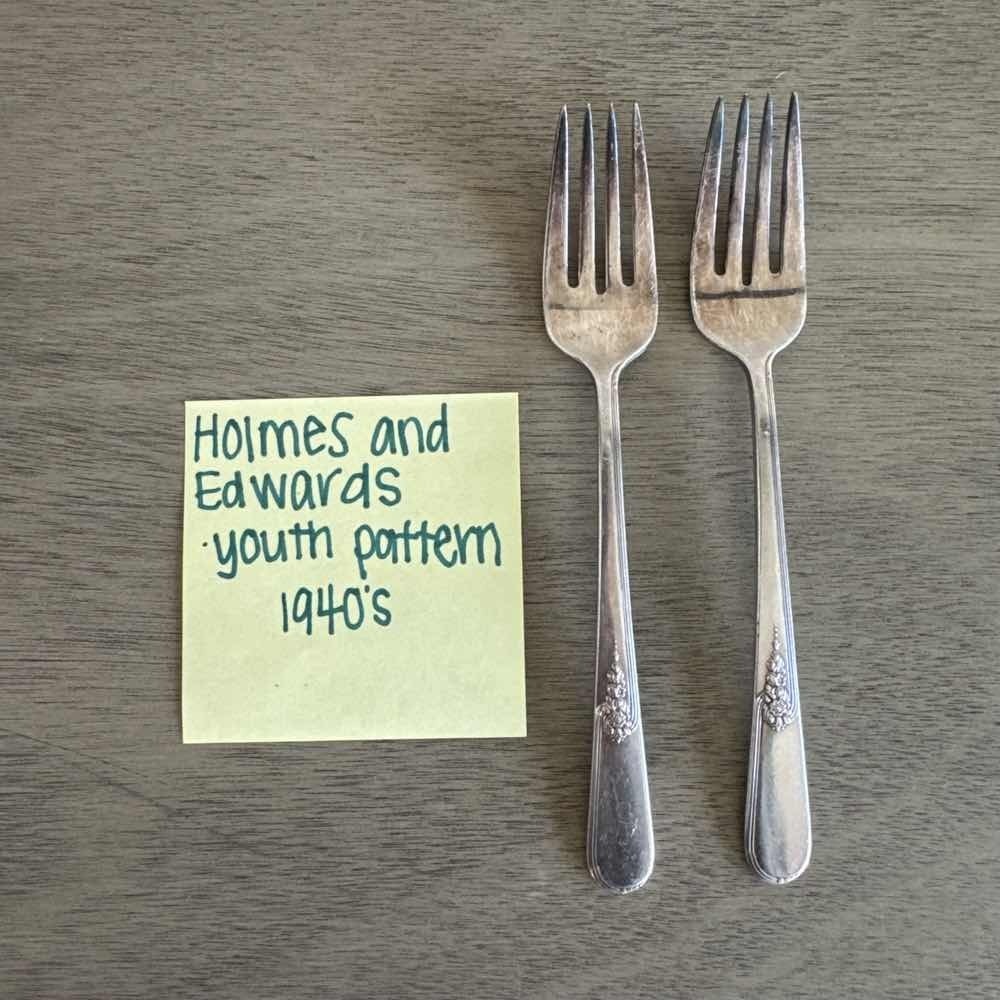 Holmes and
Edwards
·youth pattern
1940's